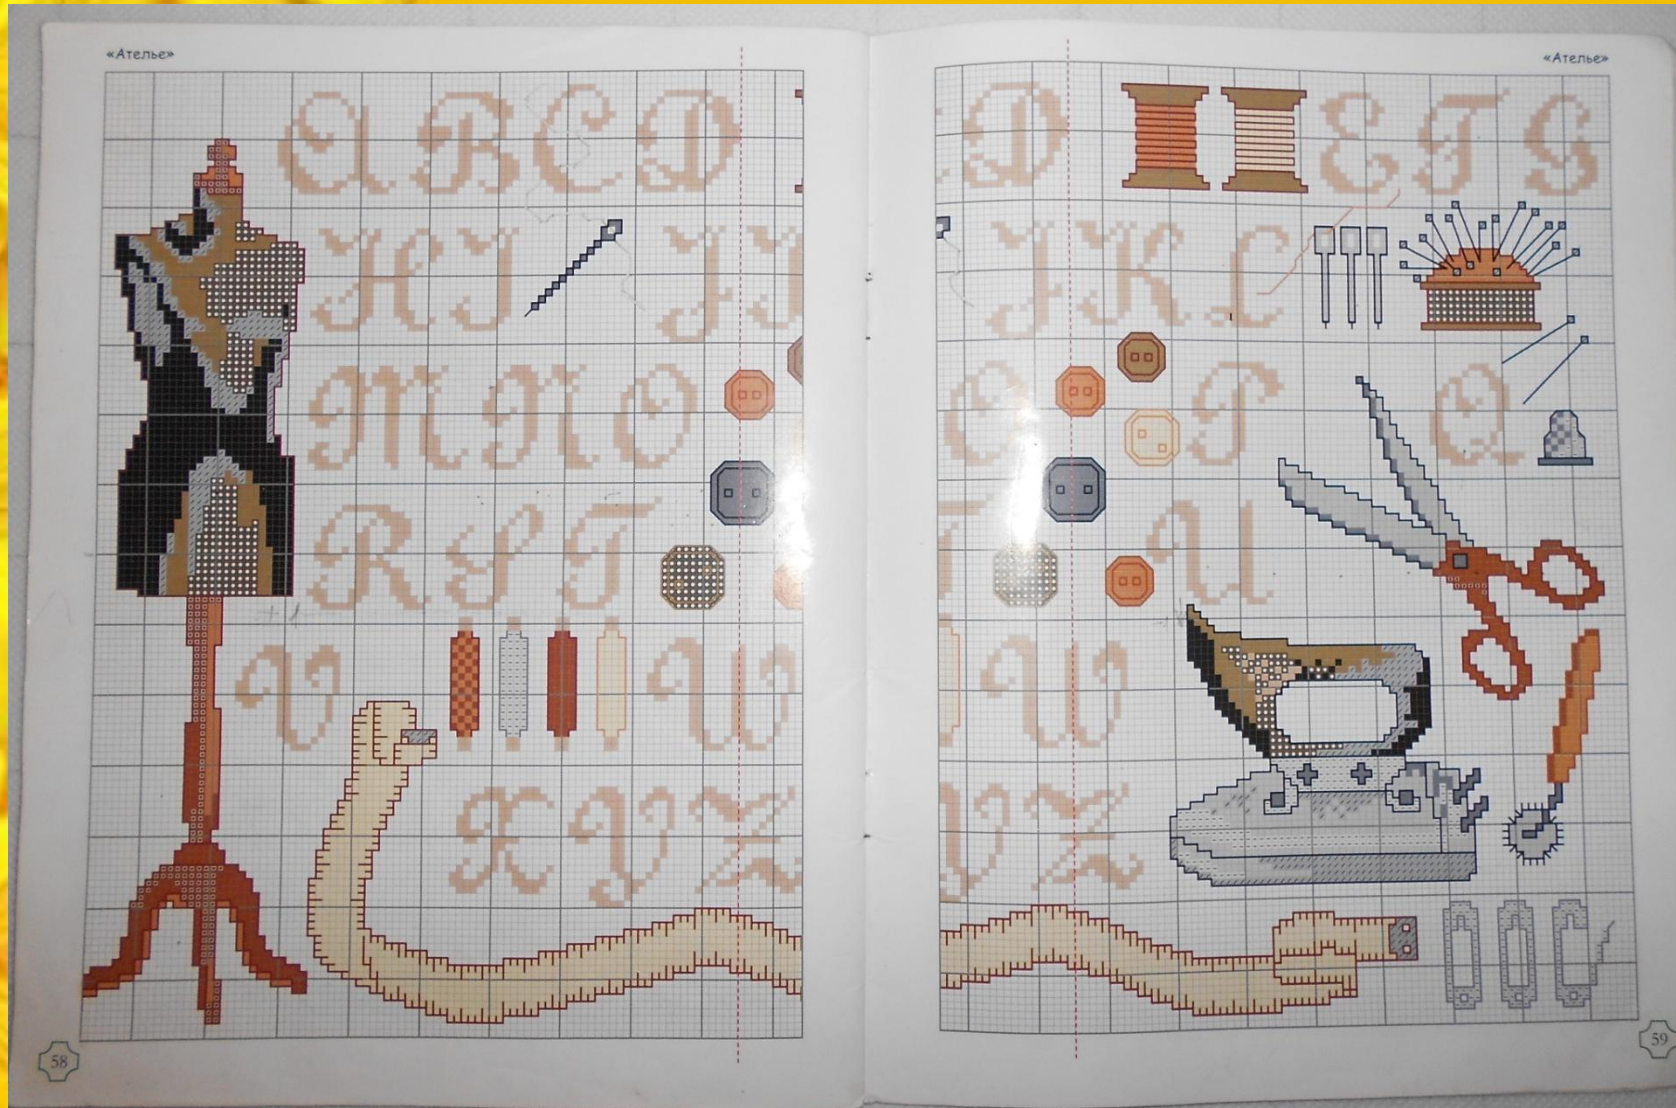 «Ателье»
A B C D
H I J
M N O
R S T
V W
X Y Z
58
«Ателье»
D E F G
J K L
O P Q
U
W
Y Z
59